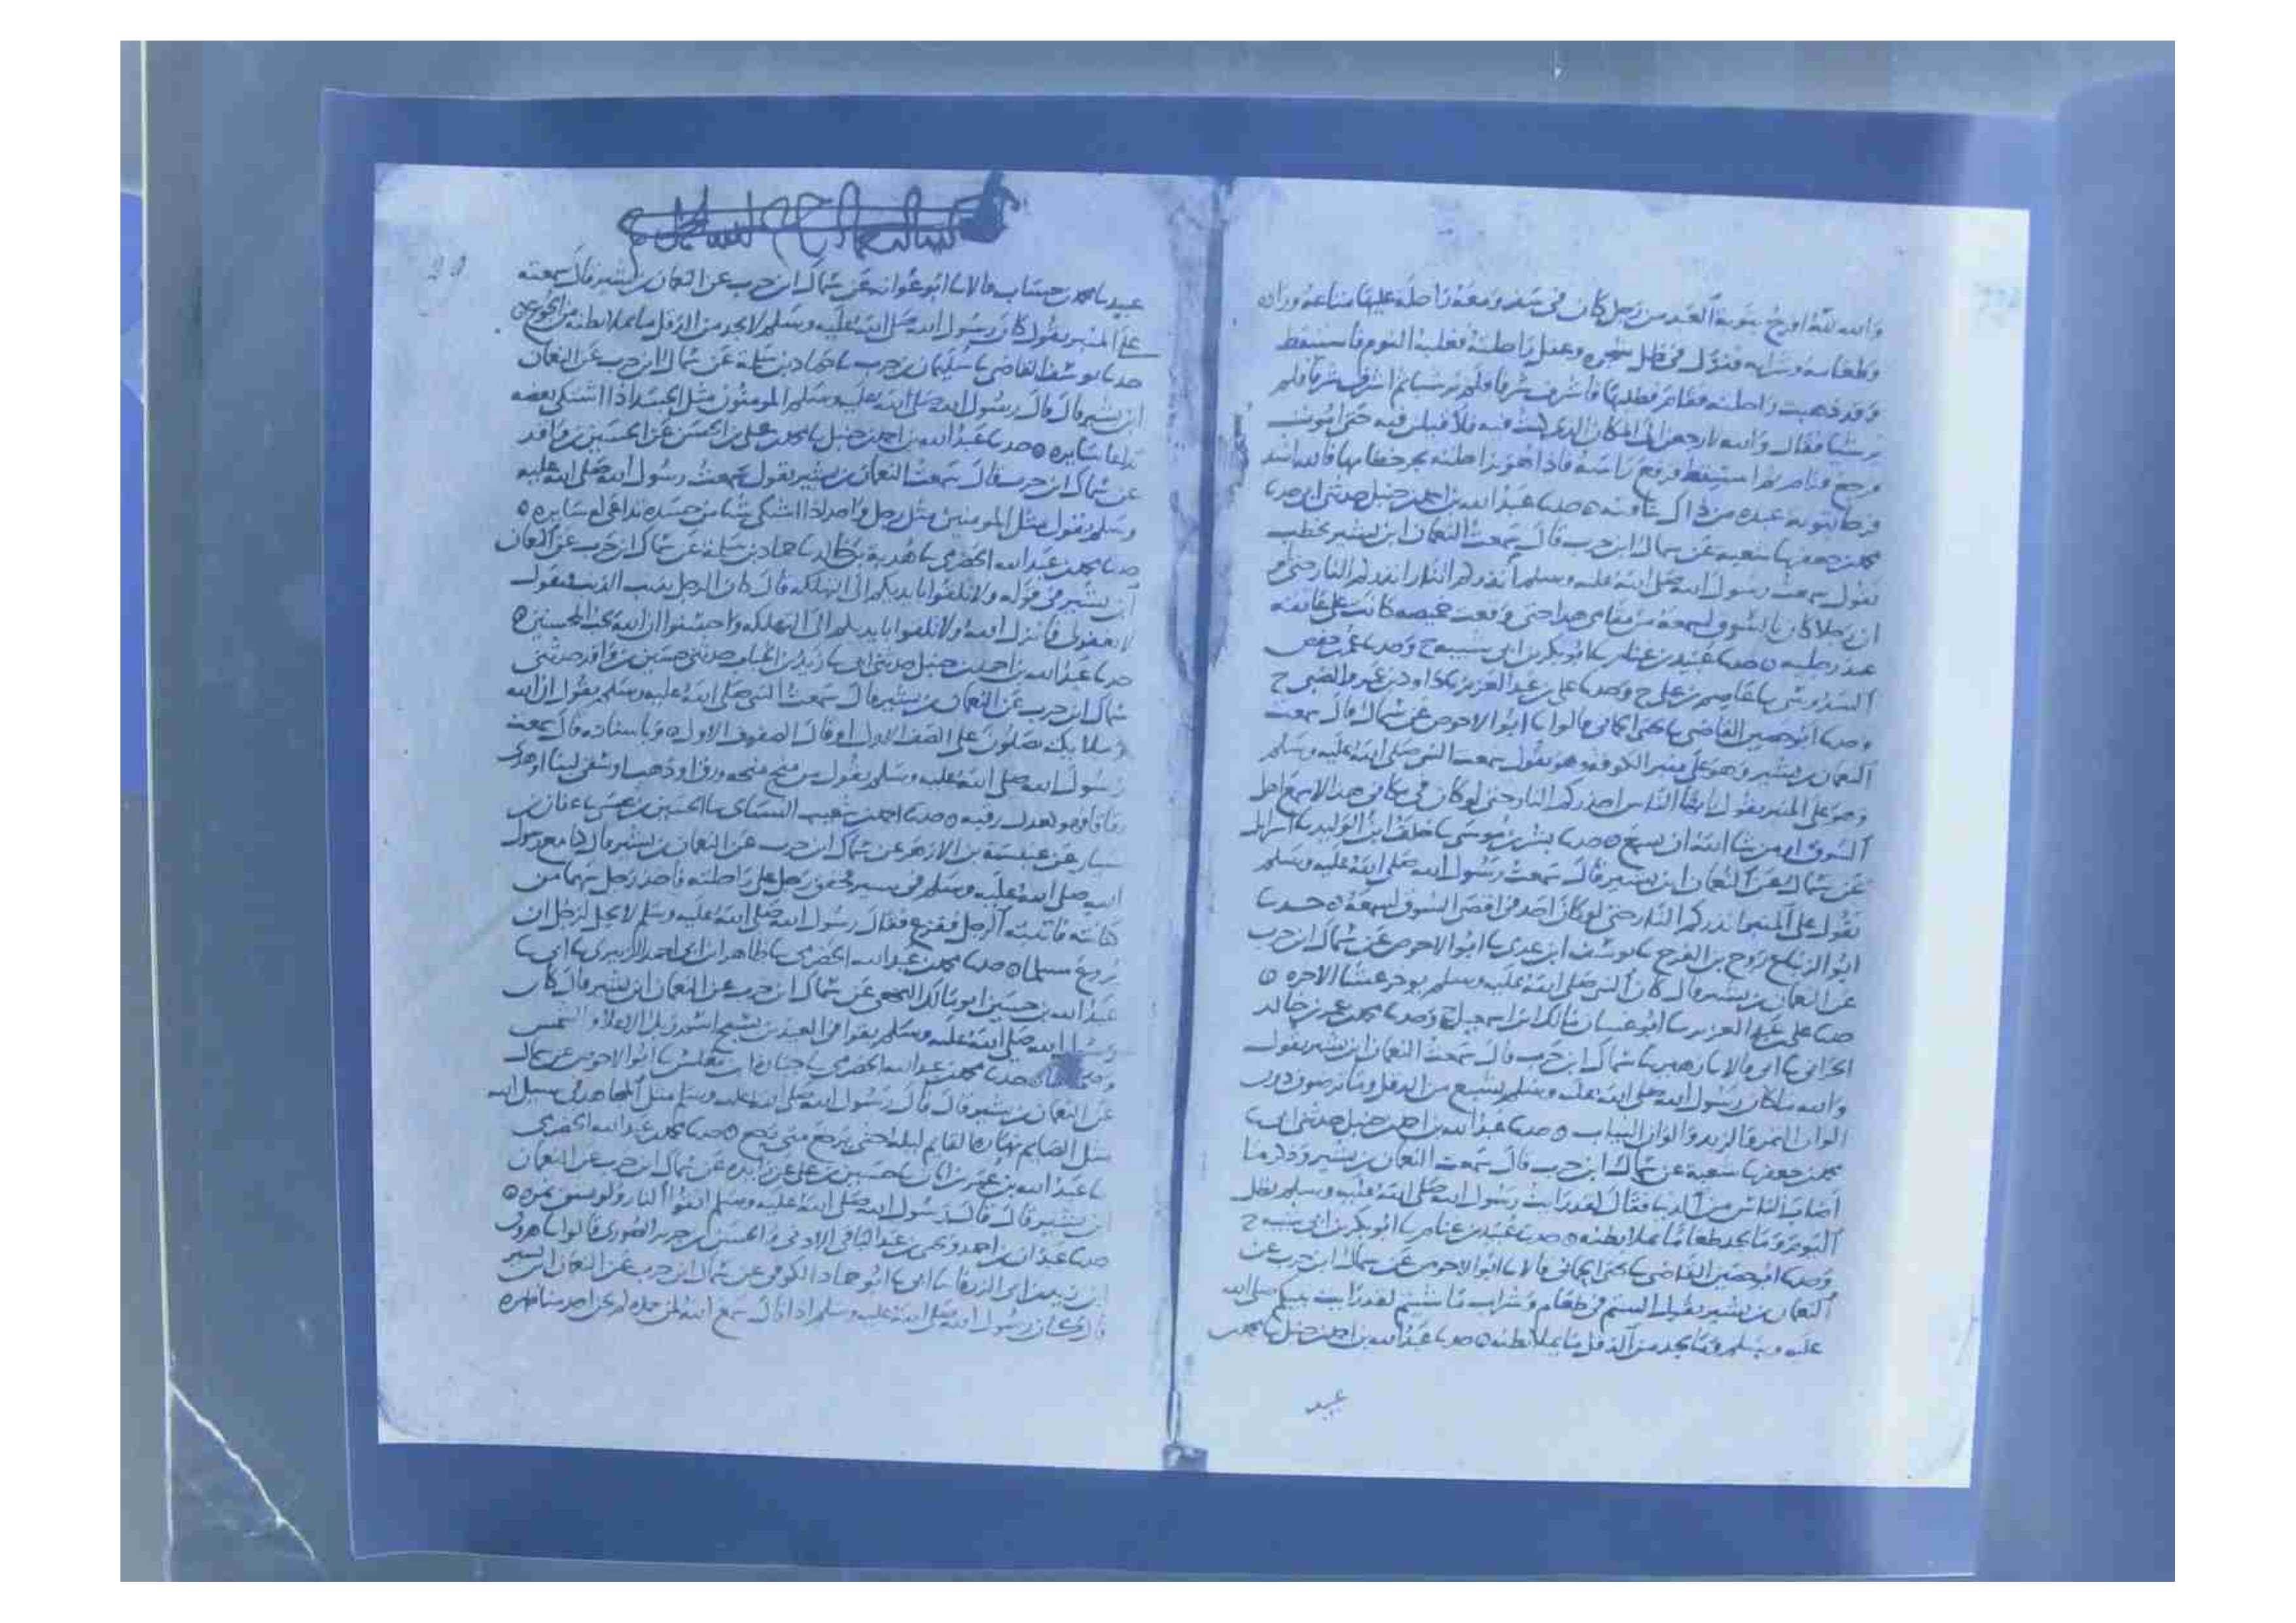 والله لله افرح بتوبة العبد من رجل كان في سفر ومعه راحلة عليها متاعه وزاده
وطعامه وشرابه فنزل في ظل شجره وعقل راحلته فغلبه النوم فاستيقظ
وقد ذهبت راحلته فقام فطلبها فاشرف شرفا فلم ير شيا ثم اشرف شرفا فلم
ير شيا فقال والله لارجعن الى المكان الذي كنت فيه فلاقيلن فيه حتى اموت
فرجع فنام ثم استيقظ فرفع راسه فاذا هو براحلته يجر خطامها فالله اشد
فرحا بتوبة عبده من ذاك براحلته حدثنا عبد الله بن احمد بن حنبل حدثني ابي حدثنا
محمد بن جعفر نا شعبه عن سماك ابن حرب قال سمعت النعمان ابن بشير يخطب
يقول سمعت رسول الله صلى الله عليه وسلم انذرتكم النار انذرتكم النار حتى لو
ان رجلا كان بالسوق لسمعه من مقامي هذا حتى وقعت خميصه كانت على عاتقه
عند رجليه حدثنا عبيد بن غنام نا ابو بكر بن ابي شيبه ح وحدثنا عمر بن حفص
السدوسي نا عاصم بن علي ح وحدثنا علي بن عبد العزيز نا داود بن عمرو الضبي ح
وحدثنا ابو حصين القاضي نا يحيى الحماني قالوا نا ابو الاحوص عن سماك قال سمعت
النعمان بن بشير وهو على منبر الكوفه وهو يقول سمعت النبي صلى الله عليه وسلم
وهو على المنبر يقول يا ايها الناس احذركم النار حتى لو كان في مكاني هذا لاسمع اهل
السوق او من شا الله ان يسمع حدثنا بشر بن موسى نا خلف ابن الوليد نا اسرايل
عن سماك عن النعمان ابن بشير قال سمعت رسول الله صلى الله عليه وسلم
يقول على المنبر انذركم النار حتى لو كان احد في اقصى السوق لسمعه حدثنا
ابو الزنباع روح بن الفرج نا يوسف ابن عدي نا ابو الاحوص عن سماك ابن حرب
عن النعمان بن بشير قال كان النبي صلى الله عليه وسلم يوخر عشا الاخره
حدثنا علي بن عبد العزيز نا ابو غسان مالك ابن اسمعيل ح وحدثنا محمد بن عمرو بن خالد
الحراني نا ابي قالا نا زهير نا سماك ابن حرب قال سمعت النعمان ابن بشير يقول
والله ما كان رسول الله صلى الله عليه وسلم يشبع من الدقل وما ترضون دون
الوان التمر والزبد والوان الثياب حدثنا عبد الله بن احمد بن حنبل حدثني ابي نا
محمد بن جعفر نا شعبة عن سماك ابن حرب قال سمعت النعمان بن بشير وذكر ما
اصاب الناس من الدنيا فقال لقد رايت رسول الله صلى الله عليه وسلم يظل
اليوم وما يجد طعاما يملا بطنه حدثنا عبيد بن غنام نا ابو بكر بن ابي شيبه ح
وحدثنا ابو حصين القاضي نا يحيى الحماني قالا نا ابو الاحوص عن سماك ابن حرب عن
النعمان بن بشير يقول الستم في طعام وشراب ما شيتم لقد رايت نبيكم صلى الله
عليه وسلم وما يجد من الدقل ما يملا بطنه حدثنا عبد الله بن احمد بن حنبل نا محمد بن
عبيد
عبيد نا محمد بن حساب قالا نا ابو عوانه عن سماك ابن حرب عن النعمان بن بشير قال سمعته
على المنبر يقول كان رسول الله صلى الله عليه وسلم لا يجد من الدقل ما يملا بطنه من الجوع
حدثنا يوسف القاضي نا سليمان بن حرب نا حماد بن سلمة عن سماك ابن حرب عن النعمان
ابن بشير قال قال رسول الله صلى الله عليه وسلم المومنون مثل الجسد اذا اشتكى بعضه
تداعا سايره حدثنا عبد الله بن احمد بن حنبل نا محمد بن علي بن الحسن عن الحسين بن واقد
عن سماك ابن حرب قال سمعت النعمان بن بشير يقول سمعت رسول الله صلى الله عليه
وسلم يقول مثل المومنين مثل رجل واحد اذا اشتكى شيا من جسده تداعى له سايره
حدثنا محمد بن عبد الله الحضرمي نا هدبة بن خالد نا حماد بن سلمة عن سماك ابن حرب عن النعمان
ابن بشير في قوله ولا تلقوا بايديكم الى التهلكه قال كان الرجل يذنب الذنب فيقول
لا يغفر لي فانزل الله ولا تلقوا بايديكم الى التهلكه واحسنوا ان الله يحب المحسنين
حدثنا عبد الله بن احمد بن حنبل حدثني ابي نا زيد بن الحباب حدثني حسين بن واقد حدثني
سماك ابن حرب عن النعمان بن بشير قال سمعت النبي صلى الله عليه وسلم يقول ان الله
وملايكته يصلون على الصف الاول او قال الصفوف الاول وباسناده قال سمعت
رسول الله صلى الله عليه وسلم يقول من منح منحه ورقا او ذهبا او سقى لبنا او هدى
زقاقا فهو كعدل رقبه حدثنا احمد بن شعيب النسائي نا الحسين بن عيسى نا عفان بن
سيار عن عنبسة بن الازهر عن سماك ابن حرب عن النعمان بن بشير قال كنا مع رسول
الله صلى الله عليه وسلم في مسير فخفق رجل على راحلته فاخذ رجل سهما من
كنانته فانتبه الرجل ففزع فقال رسول الله صلى الله عليه وسلم لا يحل لرجل ان
يروع مسلما حدثنا محمد بن عبد الله الحضرمي نا طاهر ابن ابي احمد الزبيري نا ابي نا
عبد الله بن حسين ابو مالك النخعي عن سماك ابن حرب عن النعمان ابن بشير قال كان
رسول الله صلى الله عليه وسلم يقرا في العيدين بسبح اسم ربك الاعلا والشمس
وضحاها حدثنا محمد بن عبد الله الحضرمي نا جبارة بن مغلس نا ابو الاحوص عن سماك
عن النعمان بن بشير قال قال رسول الله صلى الله عليه وسلم مثل المجاهد في سبيل الله
مثل الصايم نهاره القايم ليله حتى يرجع متى يرجع حدثنا محمد بن عبد الله الحضرمي
نا عبد الله بن عمر بن ابان نا حسين بن علي عن زايده عن سماك ابن حرب عن النعمان
ابن بشير قال قال رسول الله صلى الله عليه وسلم اتقوا النار ولو بشق تمره
حدثنا عبدان بن احمد ويحيى بن عبد الباقي الاذني والحسن بن جرير الصوري قالوا نا هرون
ابن زيد بن ابي الزرقا نا ابي نا ابو حماد الكوفي عن سماك ابن حرب عن النعمان ابن بشير
قال كان رسول الله صلى الله عليه وسلم اذا قال سمع الله لمن حمده لم يحن احد منا ظهره